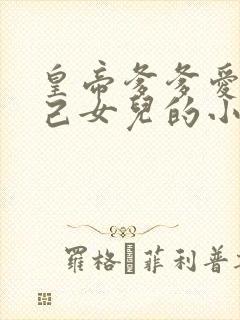 皇帝爹爹愛
己女兒的小
羅格 菲利普